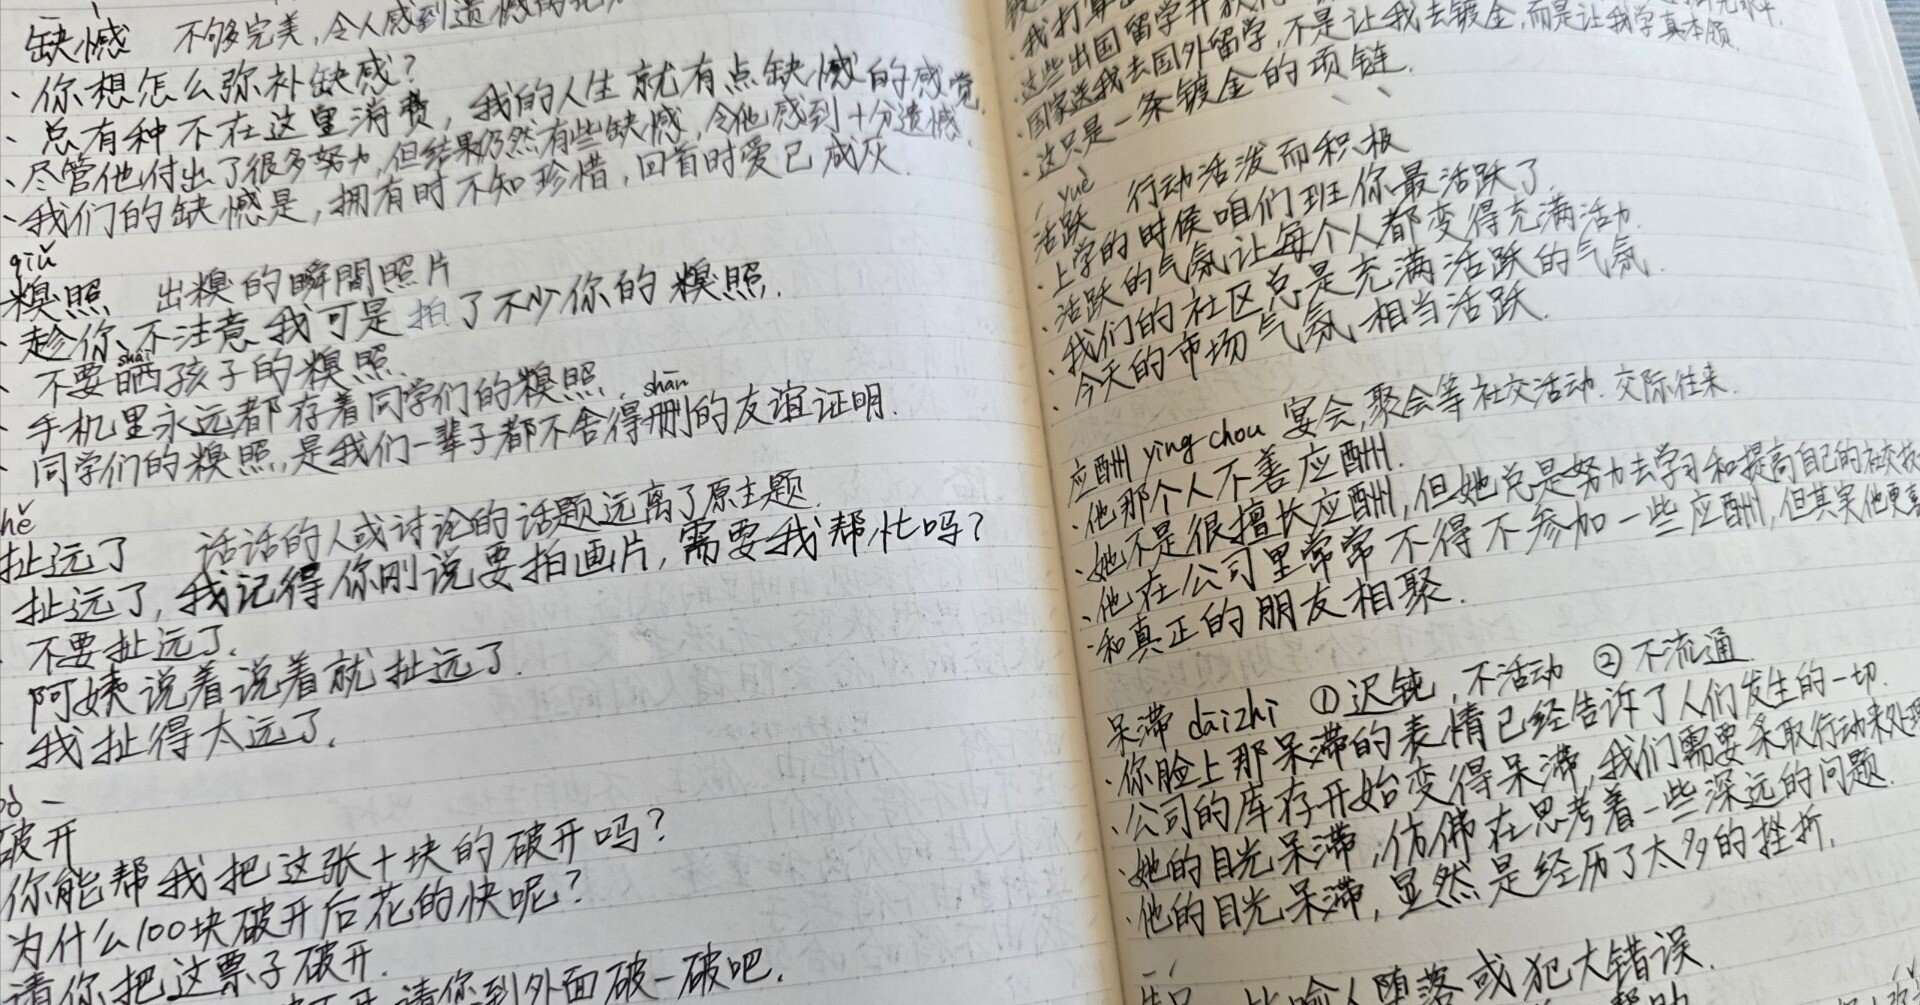 缺憾 不够完美，令人感到遗憾的
· 你想怎么弥补缺感？
· 总有种不在这里消费，我的人生就有点缺憾的感觉.
· 尽管他付出了很多努力，但结果仍然有些缺憾，令他感到十分遗憾.
· 我们的缺憾是，拥有时不知珍惜，回首时爱已成灰.
qiǔ
糗照 出糗的瞬間照片
· 趁你不注意我可是拍了不少你的糗照.
shài
· 不要晒孩子的糗照.
· 手机里永远都存着同学们的糗照.
shān
· 同学们的糗照，是我们一辈子都不舍得删的友谊证明.
hě
扯远了 话话的人或讨论的话题远离了原主题.
扯远了，我记得你刚说要拍画片，需要我帮忙吗？
· 不要扯远了.
阿姨说着说着就扯远了.
· 我扯得太远了.
破开
你能帮我把这张十块的破开吗？
为什么100块破开后花的快呢？
请你把这票子破开.
请你到外面破一破吧.
· 我打算
· 这些出国留学并
· 国家送我去国外留学，不是让我去镀金，而是让我学真本领.
· 这只是一条镀金的项链.
yuè
活跃 行动活泼而积极
· 上学的时候咱们班你最活跃了.
· 活跃的气氛让每个人都变得充满活力.
· 我们的社区总是充满活跃的气氛.
· 今天的市场气氛相当活跃.
应酬 yìng chou 宴会，聚会等社交活动. 交际往来.
· 他那个人不善应酬.
· 她不是很擅长应酬，但她总是努力去学习和提高自己的社交技
· 他在公司里常常不得不参加一些应酬，但其实他更喜
· 和真正的朋友相聚.
呆滞 dāizhì ①迟钝，不活动 ②不流通
· 你脸上那呆滞的表情已经告诉了人们发生的一切.
· 公司的库存开始变得呆滞，我们需要采取行动来处理
· 她的目光呆滞，仿佛在思考着一些深远的问题.
· 他的目光呆滞，显然是经历了太多的挫折.
比喻人堕落或犯大错误.